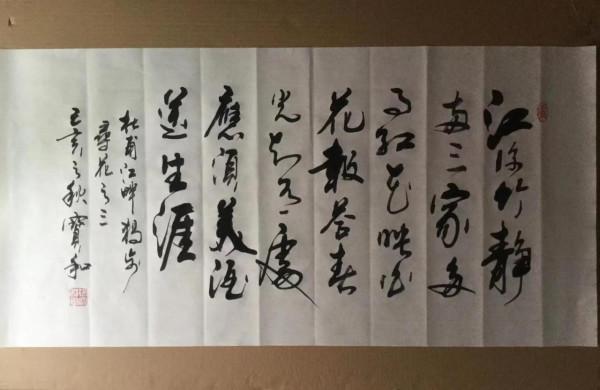 江深竹靜
两三家多
事红花映白
花報答春
光知有處
應須美酒
送生涯
杜甫江畔獨步
尋花之三
己亥之秋寶和